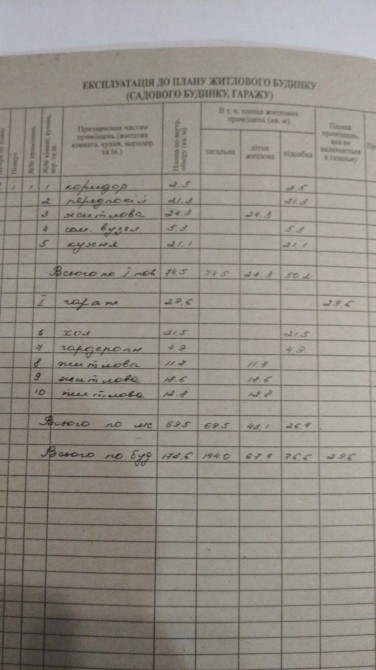 ЕКСПЛУАТАЦІЯ ДО ПЛАНУ ЖИТЛОВОГО БУДИНКУ
(САДОВОГО БУДИНКУ, ГАРАЖУ)
Призначення частин приміщень (житлова кімната, кухня, коридор та ін.)
Площа по внутр. обміру (кв. м)
В т. ч. площа житлових приміщень (кв. м)
загальна
житлова
підсобна
Площа приміщень, яка не включається в загальну
1 1 1 коридор 2.5 2.5
2 21.3 21.3
3 житлова 24.3 24.3
4 сан. вузел 5.3 5.3
5 кухня 21.1 21.1
Всього по І пов 74.5 74.5 24.3 50.2
І гараж 29.6 29.6
6 хол 21.5 21.5
7 4.9 4.9
8 житлова 11.7 11.7
9 житлова 18.6 18.6
10 житлова 12.8 12.8
Всього по 69.5 69.5 43.1 26.4
Всього по буд 173.6 144.0 67.4 76.6 29.6